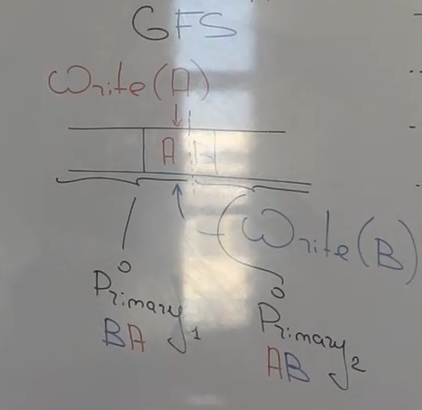 GFS
Write(A)
A
Write(B)
Primary 1
BA
Primary 2
AB